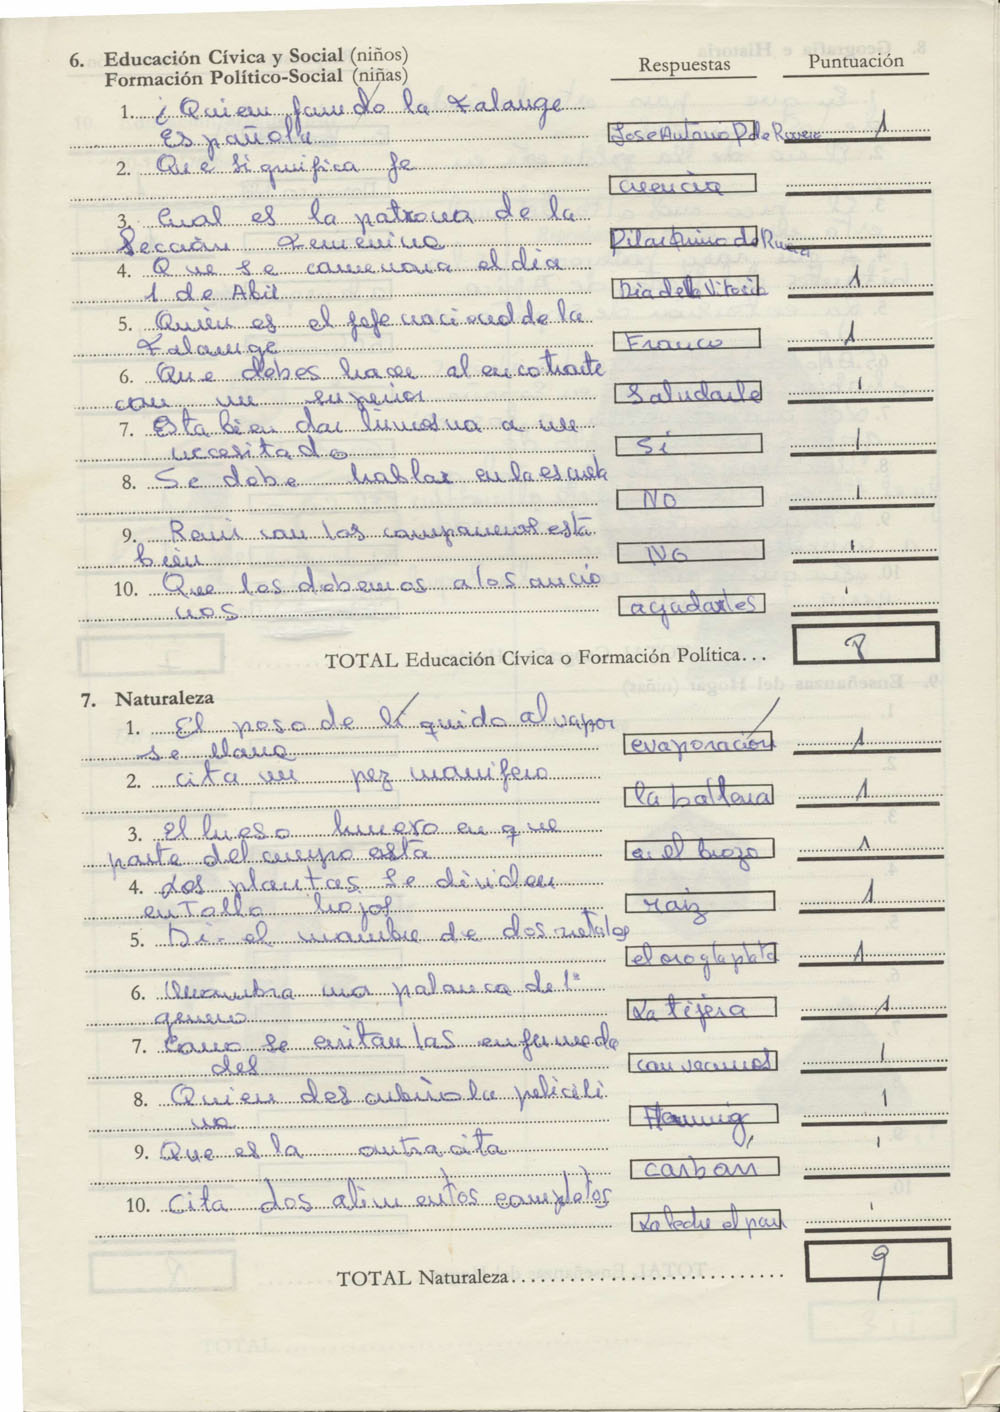 6. Educación Cívica y Social (niños)
Formación Político-Social (niñas)
Respuestas
Puntuación
1. ¿Quien fundó la Falange
Española
Jose Antonio P. de Rivera
1
2. Que significa fe
creencia
3. Cual es la patrona de la
Sección Femenina
Pilar Primo de Rivera
4. Que se comemora el dia
1 de Abil
Dia de la Vitoria
1
5. Quién es el jefe nacional de la
Falange
Franco
1
6. Que debes hacer al encontrarte
con un superior
Saludarle
1
7. Esta bien dar limosna a un
necesitado
Sí
1
8. Se debe hablar en la escuela
No
1
9. Reñir con los compañeros está
bien
No
1
10. Que les debemos a los ancia
nos
ayudarles
1
TOTAL Educación Cívica o Formación Política...
8
7. Naturaleza
1. El paso de líquido al vapor
se llama
evaporación
1
2. Cita un pez mamífero
la ballena
1
3. El hueso humero en que
parte del cuerpo esta
en el brazo
1
4. Los plantas se dividen
en Tallo hojas
raiz
1
5. Di el nombre de dos metales
el oro y la plata
1
6. Nombra una palanca de 1º
genero
La tijera
1
7. Como se evitan las enfermeda
des
con vacunas
1
8. Quien descubrio la pelicili
na
Flemmig
1
9. Que es la antracita
carbón
1
10. Cita dos alimentos completos
La leche el pan
1
TOTAL Naturaleza
9